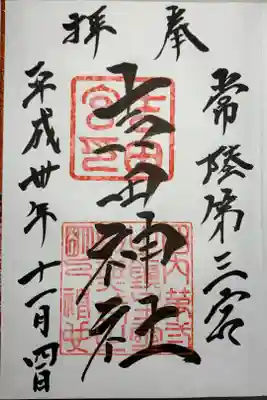 奉拝
常陸第三宮
吉田神社
平成卅年十一月四日